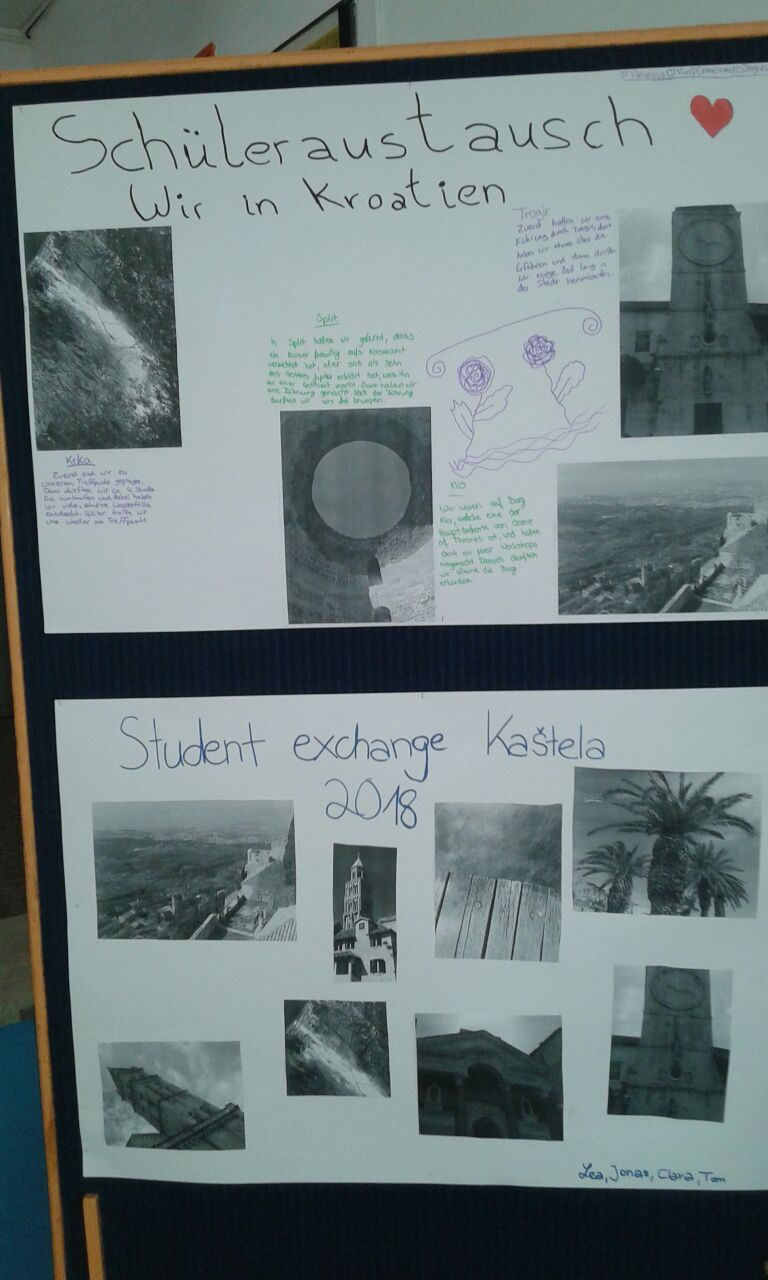 Schüleraustausch
Wir in Kroatien
Trogir
Zuerst hatten wir eine
Führung durch Trogir, dort
haben wir etwas über die
erfahren und dann durften
wir einige Zeit lang in
der Stadt herumlaufen.
Split
In Split haben wir gelernt, dass
ein Kaiser freiwillig aufs Kaiseramt
verzichtet hat, aber sich als Sohn
des Gottes Jupiter erklärt hat, was ihn
zu einer Gottheit macht. Dann haben wir
eine Führung gemacht. Nach der Führung
durften wir uns frei bewegen.
Krka
Zuerst sind wir zu
unserem Treffpunkt gegangen.
Dann durften wir ca. 4 Stunden
frei rumlaufen und dabei haben
wir viele, schöne Wasserfälle
entdeckt. Später trafen wir
uns wieder am Treffpunkt.
Klis
Wir waren auf Burg
Klis, welche eine der
Hauptdrehorte von Game
of Thrones ist, und haben
dort ein paar Workshops
mitgemacht. Danach durften
wir alleine die Burg
erkunden.
Student exchange Kaštela
2018
Lea, Jonas, Clara, Tom